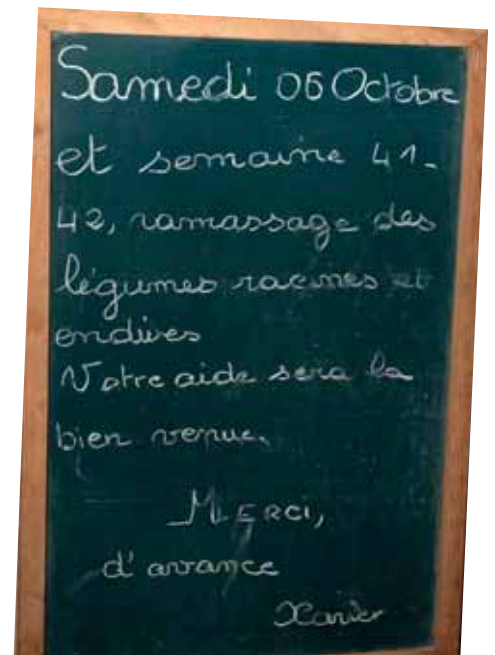 Samedi 06 Octobre
et semaine 41-
42, ramassage des
légumes racines et
endives
Votre aide sera la
bien venue.
MERCI,
d'avance
Xavier